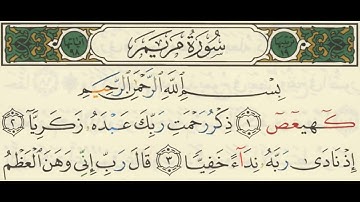 سُورَةُ مَرْيَمَ
بِسْمِ ٱللَّهِ ٱلرَّحْمَٰنِ ٱلرَّحِيمِ
كٓهيعٓصٓ ١ ذِكْرُ رَحْمَتِ رَبِّكَ عَبْدَهُۥ زَكَرِيَّآ ٢
إِذْ نَادَىٰ رَبَّهُۥ نِدَآءً خَفِيًّا ٣ قَالَ رَبِّ إِنِّى وَهَنَ ٱلْعَظْمُ